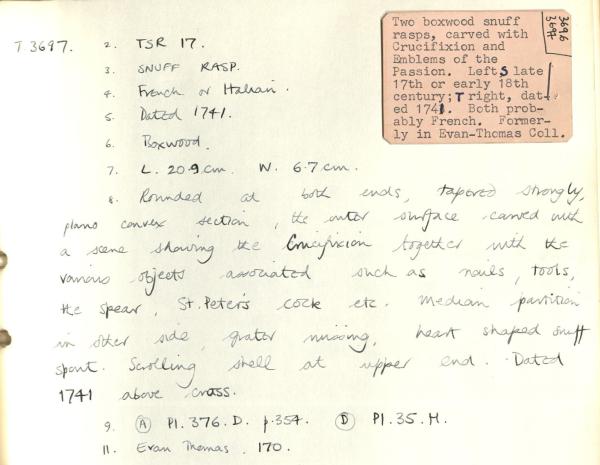 T.3697.
2. TSR 17.
3. SNUFF RASP.
4. French or Italian.
5. Dated 1741.
6. Boxwood.
7. L. 20.9 cm. W. 6.7 cm.
8. Rounded at both ends, tapered strongly,
plano convex section, the outer surface carved with
a scene showing the Crucifixion together with the
various objects associated such as nails, tools,
the spear, St. Peter's cock etc. Median partition
in other side, grater missing, heart shaped snuff
spout. Scrolling shell at upper end. Dated
1741 above cross.
9. A Pl. 376. D. p. 354. D Pl. 35. H.
11. Evan Thomas. 170.
Two boxwood snuff
rasps, carved with
Crucifixion and
Emblems of the
Passion. Left S late
17th or early 18th
century; T right, dat-
ed 1741. Both prob-
ably French. Former-
ly in Evan-Thomas Coll.
3696
3697